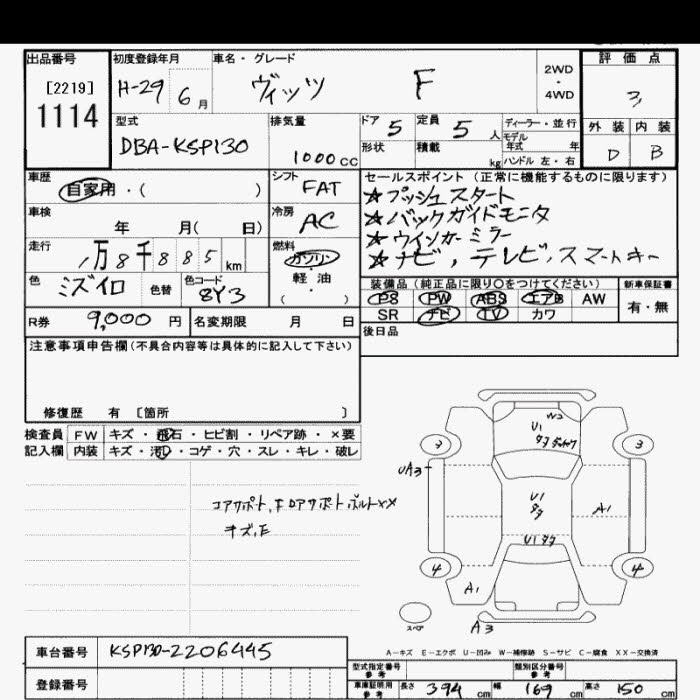 出品番号 初度登録年月 車名・グレード 評価点
[2219] H-29 6月 ヴィッツ F 2WD・4WD
1114 外装 内装
型式 排気量 ドア 5 定員 5人 ディーラー・並行
DBA-KSP130 1000cc 形状 積載 kg モデル年式 年 ハンドル 左・右 D B
車歴 自家用・( ) シフト FAT セールスポイント (正常に機能するものに限ります)
★プッシュスタート
車検 年 月( 日) 冷房 AC ★バックガイドモニタ
★ウインカーミラー
走行 1万8千885km 燃料 ガソリン・軽油・( ) ★ナビ,テレビ,スマートキー
色 ミズイロ 色替 色コード 8Y3 装備品 (純正品に限り○をつけてください) 新車保証書
PS PW ABS エアB AW 有・無
R券 9,000円 名変期限 月 日 SR ナビ TV カワ
注意事項申告欄(不具合内容等は具体的に記入して下さい) 後日品
修復歴 有 [箇所 ]
検査員 FW キズ・飛石・ヒビ割・リペア跡・×要
記入欄 内装 キズ・汚れ・コゲ・穴・スレ・キレ・破レ
W2
U1
3 3
UA3
コアサポート, ボルト××
U1
キズ,E A1
U1
4 4
A1
スペア A3
A-キズ E-エクボ U-凹み W-補修跡 S-サビ C-腐食 XX-交換済
車台番号 KSP130-2206445
型式指定番号 参考 類別区分番号 参考
登録番号 車庫証明用 参考 長さ 394cm 幅 169cm 高さ 150cm